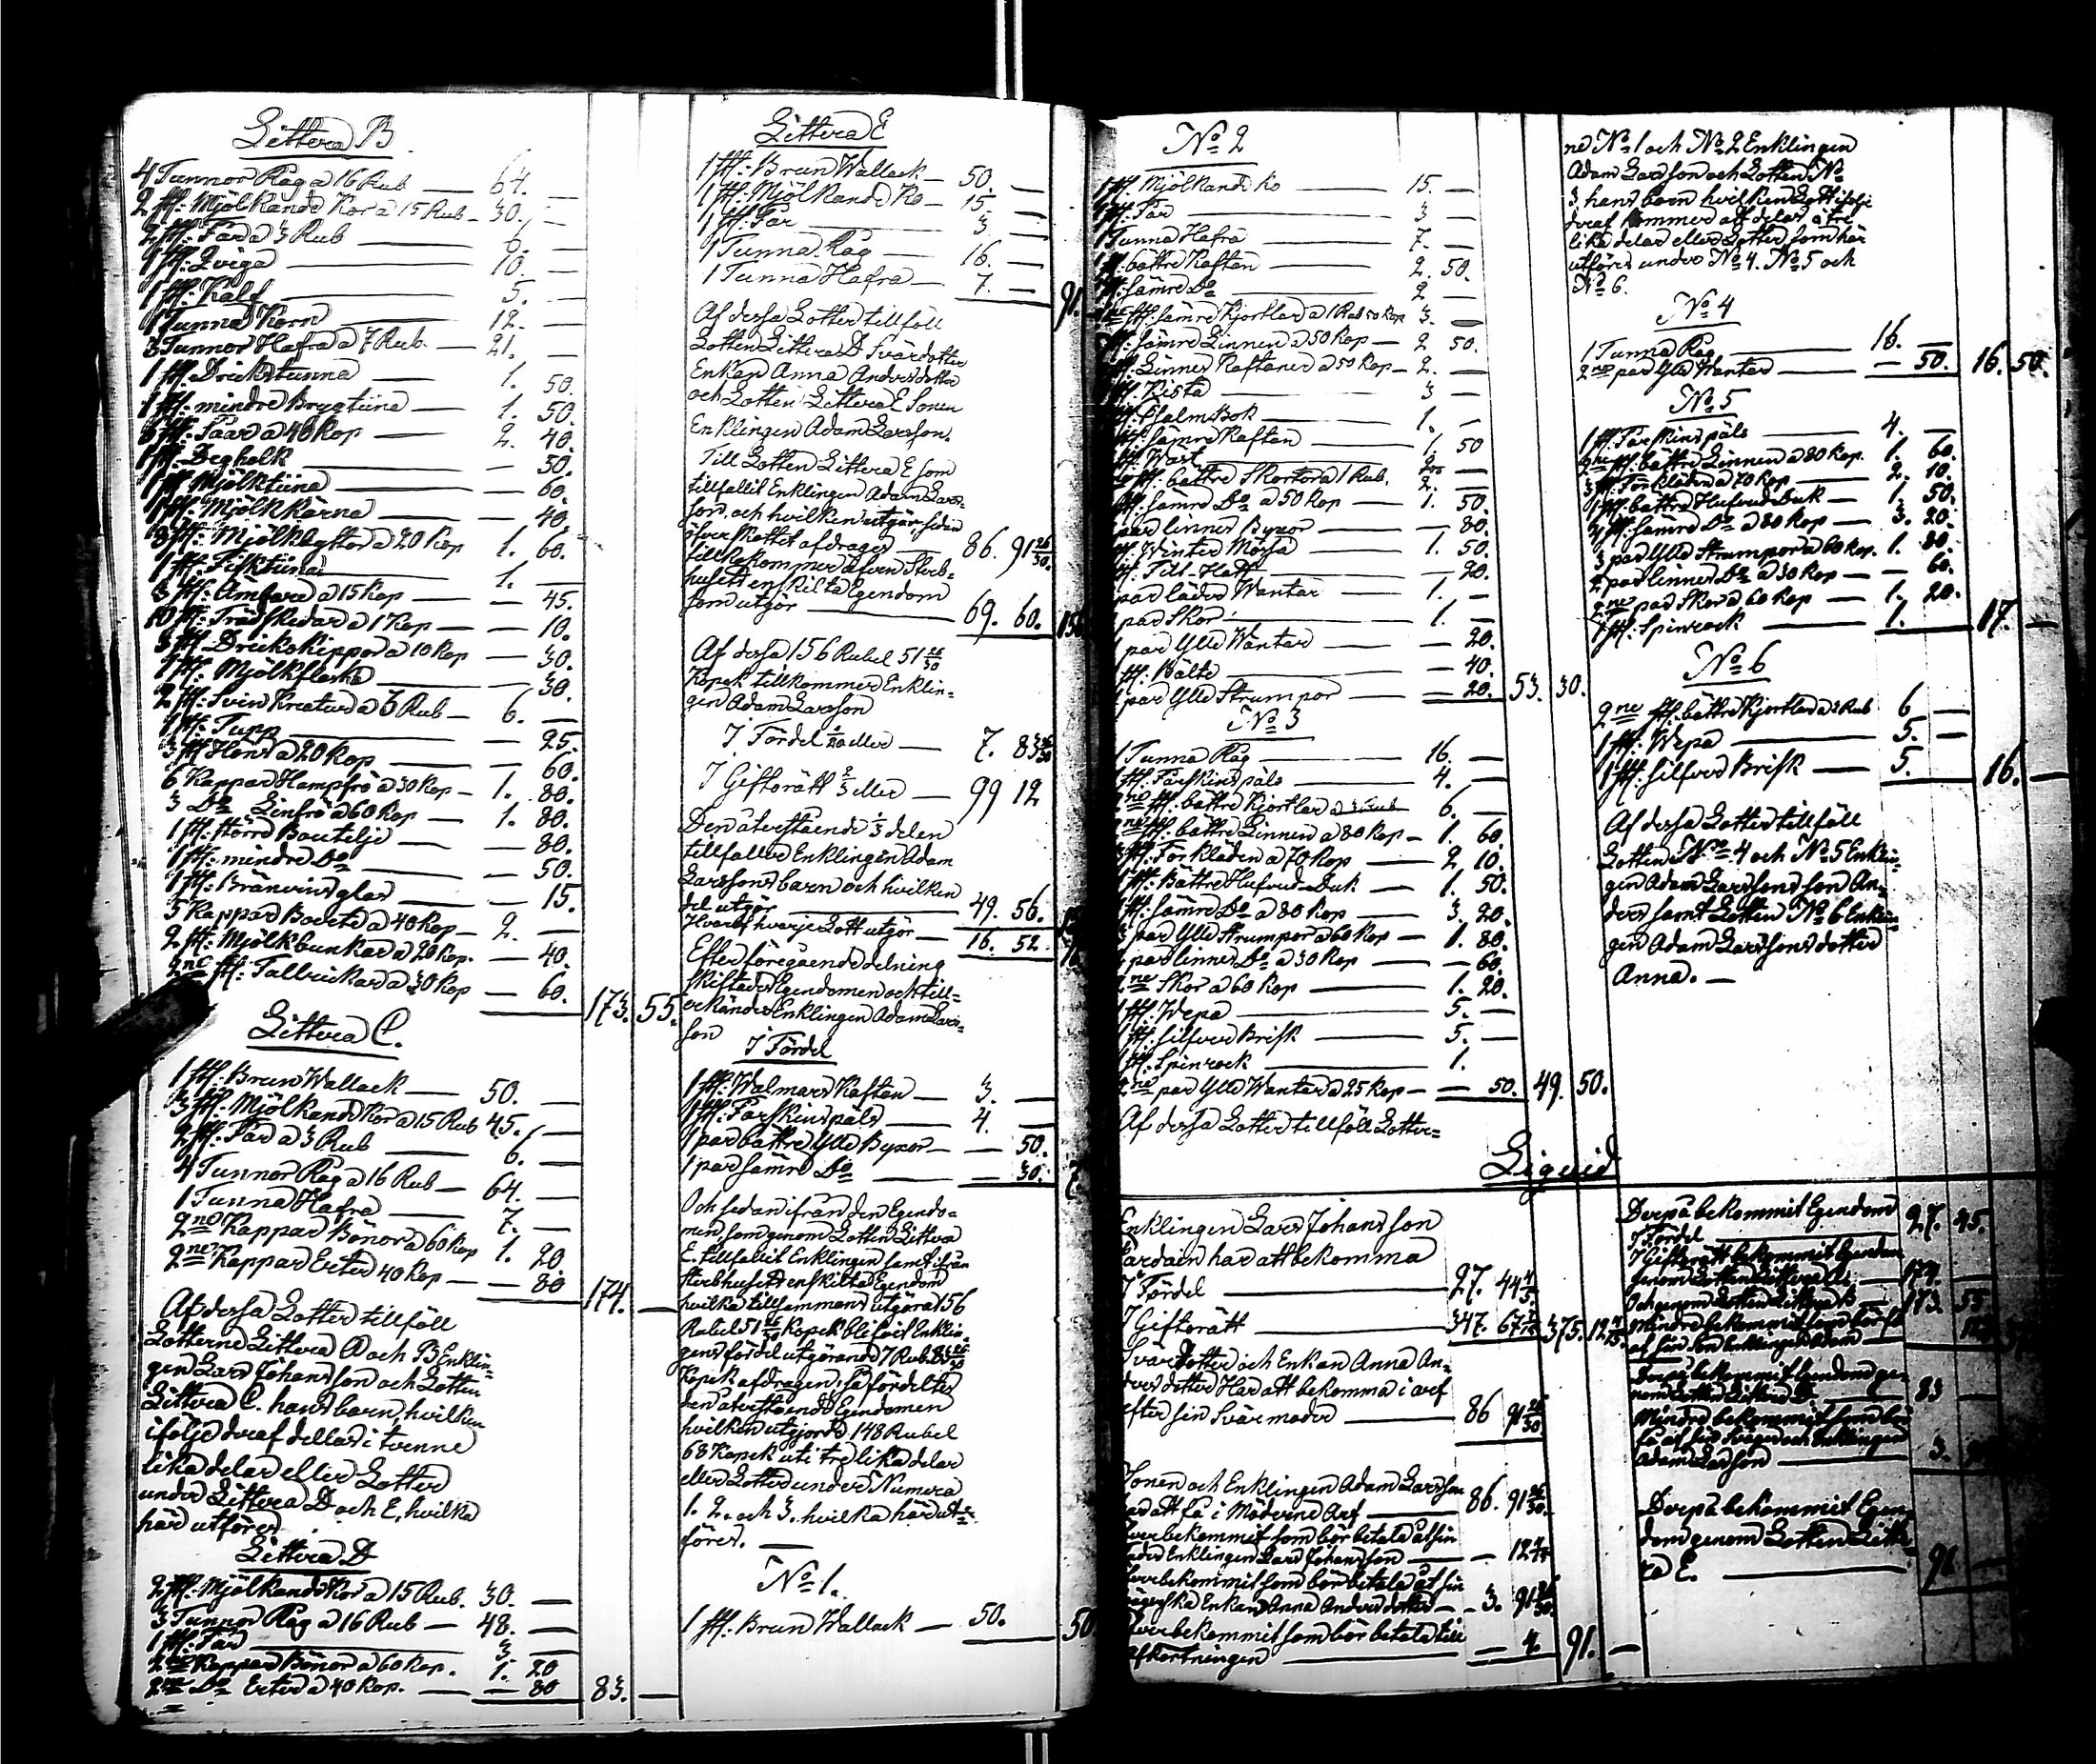 Littera B
4 Tunnor Råg a 16 Rub — 64. —
2 st: Mjölkande Kor a 15 Rub — 30. —
2 st: Får a 3 Rub — 6. —
1 st: Qviga — 10. —
1 st: Kalf — 5. —
1 Tunna Korn — 12. —
3 Tunnor Hafra a 7 Rub. — 21. —
1 st: Drickstunna — 1. 50.
1 st: mindre Brygtina — 1. 50.
6 st: Såar a 40 Kop — 2. 40.
1 st: Degholk — 50.
1 st: Mjölktina — 60.
1 st: Mjölkkärna — 40.
8 st: Mjölkbyttor a 20 Kop 1. 60.
1 st: Fisktina — 1. —
3 st: Ämbare a 15 Kop — 45.
10 st: Trädskedar a 1 Kop — 10.
3 st: Drickskippor a 10 Kop — 30.
1 st: Mjölkflaska — 30.
2 st: Svin Kreatur a 3 Rub — 6. —
1 st: Tupp — 25.
3 st: Höns a 20 Kop — 60.
6 Kappar Hampfrö a 30 Kop — 1. 80.
3 Do Linfrö a 60 Kop — 1. 80.
1 st: större Boutelje — 80.
1 st: mindre Do — 50.
1 st: Bränvins glas — 15.
5 Kappar Bovete a 40 Kop — 2. —
2 st: Mjölkbunkar a 20 Kop. — 40.
2ne st: Tallrickar a 30 Kop — 60. 173. 55.
Littera C.
1 st: Brun Wallack — 50. —
3 st: Mjölkande Kor a 15 Rub 45. —
2 st: Får a 3 Rub — 6. —
4 Tunnor Råg a 16 Rub — 64. —
1 Tunna Hafra — 7. —
2ne Kappar Bönor a 60 Kop 1. 20.
2ne Kappar Erter 40 Kop — 80 174. —
Af dessa Lotter tillföll
Lotterne Littera A och B Enklin=
gen Lars Johansson och Lotten
Littera C. hans barn, hvilken
ifölje deraf dellas i tvenne
lika delar eller Lotter
under Littera D och E, hvilka
här utföres.
Littera D
2 st: Mjölkande Kor a 15 Rub. 30. —
3 Tunnor Råg a 16 Rub — 48. —
1 st: Får — 3 —
2ne Kappar Bönor a 60 Kop. 1. 20
2ne Do Erter a 40 Kop. — 80 83. —
Littera E
1 st: Brun Wallack — 50. —
1 st: Mjölkande Ko — 15. —
1 st: Får — 3 —
1 Tunna Råg — 16. —
1 Tunna Hafra — 7. — 91.
Af dessa Lotter tillföll
Lotten Littera D Svärdotter
Enkan Anna Andersdotter
och Lotten Littera E Sonen
Enklingen Adam Larsson.
Till Lotten Littera E som
tillfallit Enklingen Adam Lars=
son, och hvilken utgör sedan
öfverskottet afdrages — 86. 91 26/30.
tillkommer äfven Sterb=
husets enskilta Egendom
som utgör — 69. 60. 156
Af dessa 156 Rubel 51 26/30
Kopek tillkommer Enklin=
gen Adam Larsson
I Fördel 1/20 eller — 7. 83 26/30
I Giftorätt 2/3 eller — 99 12
Den återstående 1/3 delen
tillfaller Enklingen Adam
Larssons barn och hvilken
del utgör — 49. 56.
Hvaraf hvarje Lott utgör — 16. 52.
Efter föregående delning
skiftades Egendomen och till=
erkändes Enklingen Adam Lars=
son
I Fördel
1 st: Walmars Kaftan — 3. —
1 st: Fårskins päls — 4. —
1 par bättre Ylle Byxor — 50.
1 par sämre Do — 30. 7.
Och sedan ifrån den Egendo=
men, som genom Lotten Littera
E. tillfallit Enklingen samt ifrån
sterbhusets enskilta Egendom
hvilka tillsammans utgöra 156
Rubel 51 26/30 Kopek blifvit Enklin=
gens fördel utgörande 7 Rub. 83 26/30
Kopek afdragen, så fördeltes
den återstående Egendomen
hvilken utgjorde 148 Rubel
68 Kopek uti tre lika delar
eller Lotter under Numera
1. 2. och 3. hvilka här ut=
föres. —
No 1.
1 st: Brun Wallack — 50. 50.
No 2
1 st. Mjölkande Ko — 15. —
st: Får — 3 —
1 Tunna Hafra — 7. —
1 st: bättre Kaftan — 2. 50.
1 st: sämre Do — 2 —
2ne st: sämre Kjortlar a 1 Rub 50 Kop 3. —
st: sämre Linnen a 50 Kop — 2 50.
st: Linnes Kaftaner a 50 Kop — 2. —
st: Kista — 3 —
st: Psalm Bok — 1. —
st: sämre Kaftan — 1. 50
st: Wäst
st: bättre Skortor a 1 Rub. 2. —
st: sämre Do a 50 Kop — 1. 50.
par linnes Byxor — 80.
st: Winter Mössa — 1. 50.
st: Filt-Hatt — 20.
par läder Wantar — 1. —
par Skor — 1. —
1 par Ylle Wantar — 20.
1 st: Bälte — 40.
1 par Ylle Strumpor — 20. 53. 30.
No 3
1 Tunna Råg — 16. —
1 st: Fårskins päls — 4. —
2ne st: bättre Kjortlar a 3 Rub 6. —
2ne st: bättre Linnen a 80 Kop — 1. 60.
3 st: Förkläden a 70 Kop — 2 10.
1 st: Bättre Hufvud Duk — 1. 50.
4 st: sämre Do a 80 Kop — 3. 20.
3 par Ylle Strumpor a 60 Kop — 1. 80.
2 par linnes Do a 30 Kop — 60.
2ne Skor a 60 Kop — 1. 20.
1 st: Wepa — 5. —
1 st: silfver Brisk — 5. —
1 st: Spinrock — 1.
2ne par Ylle Wantar a 25 Kop — 50. 49. 50.
Af dessa Lotter tillföll Lotter=
ne No 1 och No 2 Enklingen
Adam Larsson och Lotten No
3. hans barn hvilken Lott ifölje
deraf kommer att delas i tre
lika delar eller Lotter som här
utföres under No 4. No 5 och
No 6.
No 4
1 Tunna Råg — 16. —
2ne par Ylle Wantar — 50. 16. 50.
No 5
1 st: Fårskins päls — 4. —
2ne st: bättre Linnen a 80 Kop. 1. 60.
3 st: Förkläden a 70 Kop — 2. 10.
1 st: bättre Hufvud Duk — 1. 50.
4 st: sämre Do a 80 Kop — 3. 20.
3 par Ylle Strumpor a 60 Kop. 1. 80.
2 par linnes Do a 30 Kop — 60.
2ne par Skor a 60 Kop — 1. 20.
1 st: Spinrock — 1. 17. —
No 6
2ne st: bättre Kjortlar a 3 Rub 6 —
1 st: Wepa — 5. —
1 st: silfver Brisk — 5. 16. —
Af dessa Lotter tillföll
Lotten No 4 och No 5 Enklin=
gen Adam Larssons son An=
ders samt Lotten No 6 Enklin=
gen Adam Larssons dotter
Anna. —
Liqvid
Enklingen Lars Johansson
Pardain har att bekomma
I Fördel — 27. 44
I Giftorätt — 347. 67 375. 12
Svärdotter och Enkan Anna An=
dersdotter Har att bekomma i arf
efter sin Svärmoder — 86 91 26/30
Sonen och Enklingen Adam Larsson
har att få i Möderne Arf — 86. 91 26/30.
öfverbekommit som bör betala åt sin
fader Enklingen Lars Johansson — 12
öfverbekommit som bör betala åt sin
svägerska Enkan Anna Andersdotter — 3. 91 26/30
öfverbekommit som bör betala till
afkortningen — 4 91. —
Derpå bekommit Egendom
I Fördel — 27. 45.
I Giftorätt bekommit Egendom
genom Lotten Littera A — 174. —
Och genom Lotten Littera B — 173. 55
Mindre bekommit som bör få
af sin Son Enklingen Adam —
Derpå bekommit Egendom ge=
nom Lotten Littera D — 83 —
Mindre bekommit som bör
få af sin Svåger och Enklingen
Adam Larsson — 3.
Derpå bekommit Egen=
dom genom Lotten Litte=
ra E. — 91 —